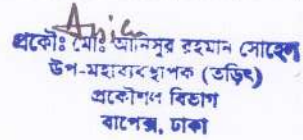 প্রকৌঃ মোঃ আনিসুর রহমান সোহেল
উপ-মহাব্যবস্থাপক (তড়িৎ)
প্রকৌশল বিভাগ
বাপেক্স, ঢাকা